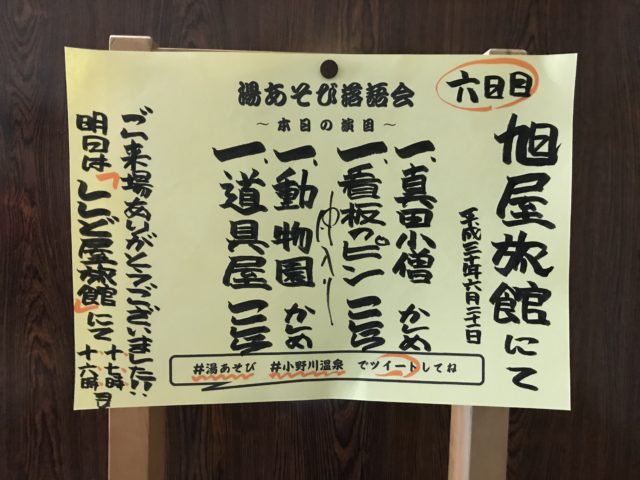 湯あそび落語会
～本日の演目～
六日目
旭屋旅館にて
平成三十年六月二十一日
一、真田小僧 かしめ
一、看板のピン
仲入り
一、動物園 かしめ
一、道具屋
ご来場ありがとうございました!!
明日は「ししど屋旅館」にて
#湯あそび #小野川温泉 でツイートしてね